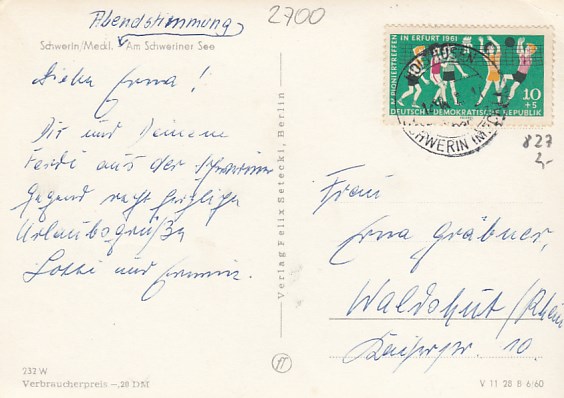 Abendstimmung
2700
Schwerin/Meckl. Am Schweriner See
Liebe Erna!
Dir und Deinem
Ferdi aus der Schweriner
Gegend recht herzliche
Urlaubsgrüße
Lotti und Erwin.
Verlag Felix Setecki, Berlin
PIONIERTREFFEN IN ERFURT 1961
10
+5
DEUTSCHE DEMOKRATISCHE REPUBLIK
SCHWERIN
827
2,-
Frau
Erna Gräbner,
Waldshut/Rhein
Kaiserstr. 10
232 W
Verbraucherpreis -,20 DM
V 11 28 B 6/60